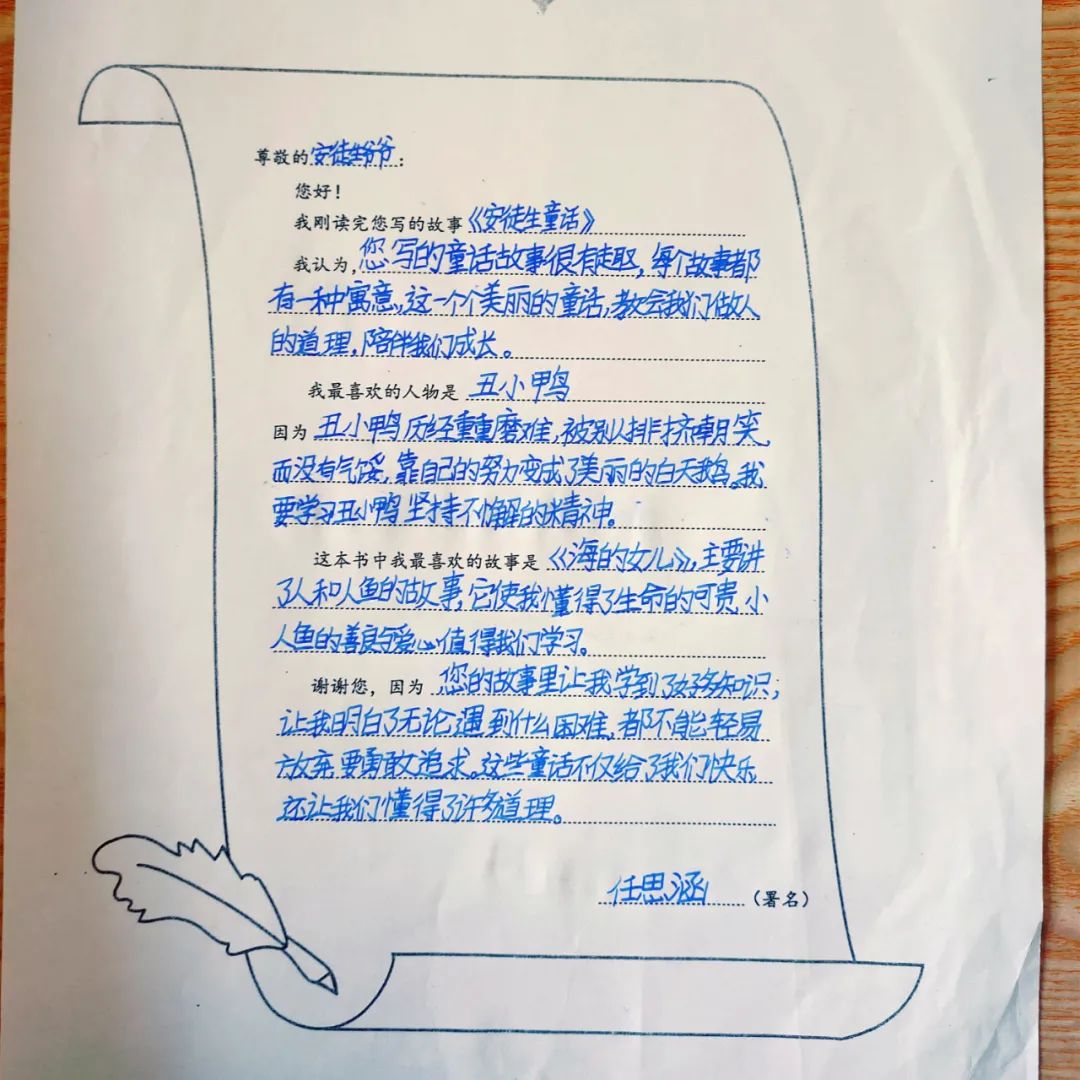 尊敬的安徒生爷爷：
您好！
我刚读完您写的故事《安徒生童话》
我认为,您写的童话故事很有趣,每个故事都
有一种寓意,这一个个美丽的童话,教会我们做人
的道理,陪伴我们成长。
我最喜欢的人物是 丑小鸭
因为 丑小鸭历经重重磨难,被别人排挤嘲笑,
而没有气馁,靠自己的努力变成了美丽的白天鹅。我
要学习丑小鸭坚持不懈的精神。
这本书中我最喜欢的故事是《海的女儿》,主要讲
了人和人鱼的故事,它使我懂得了生命的可贵,小
人鱼的善良与爱心值得我们学习。
谢谢您，因为 您的故事里让我学到了好多知识,
让我明白了无论遇到什么困难,都不能轻易
放弃要勇敢追求。这些童话不仅给了我们快乐
还让我们懂得了许多道理。
任思涵（署名）